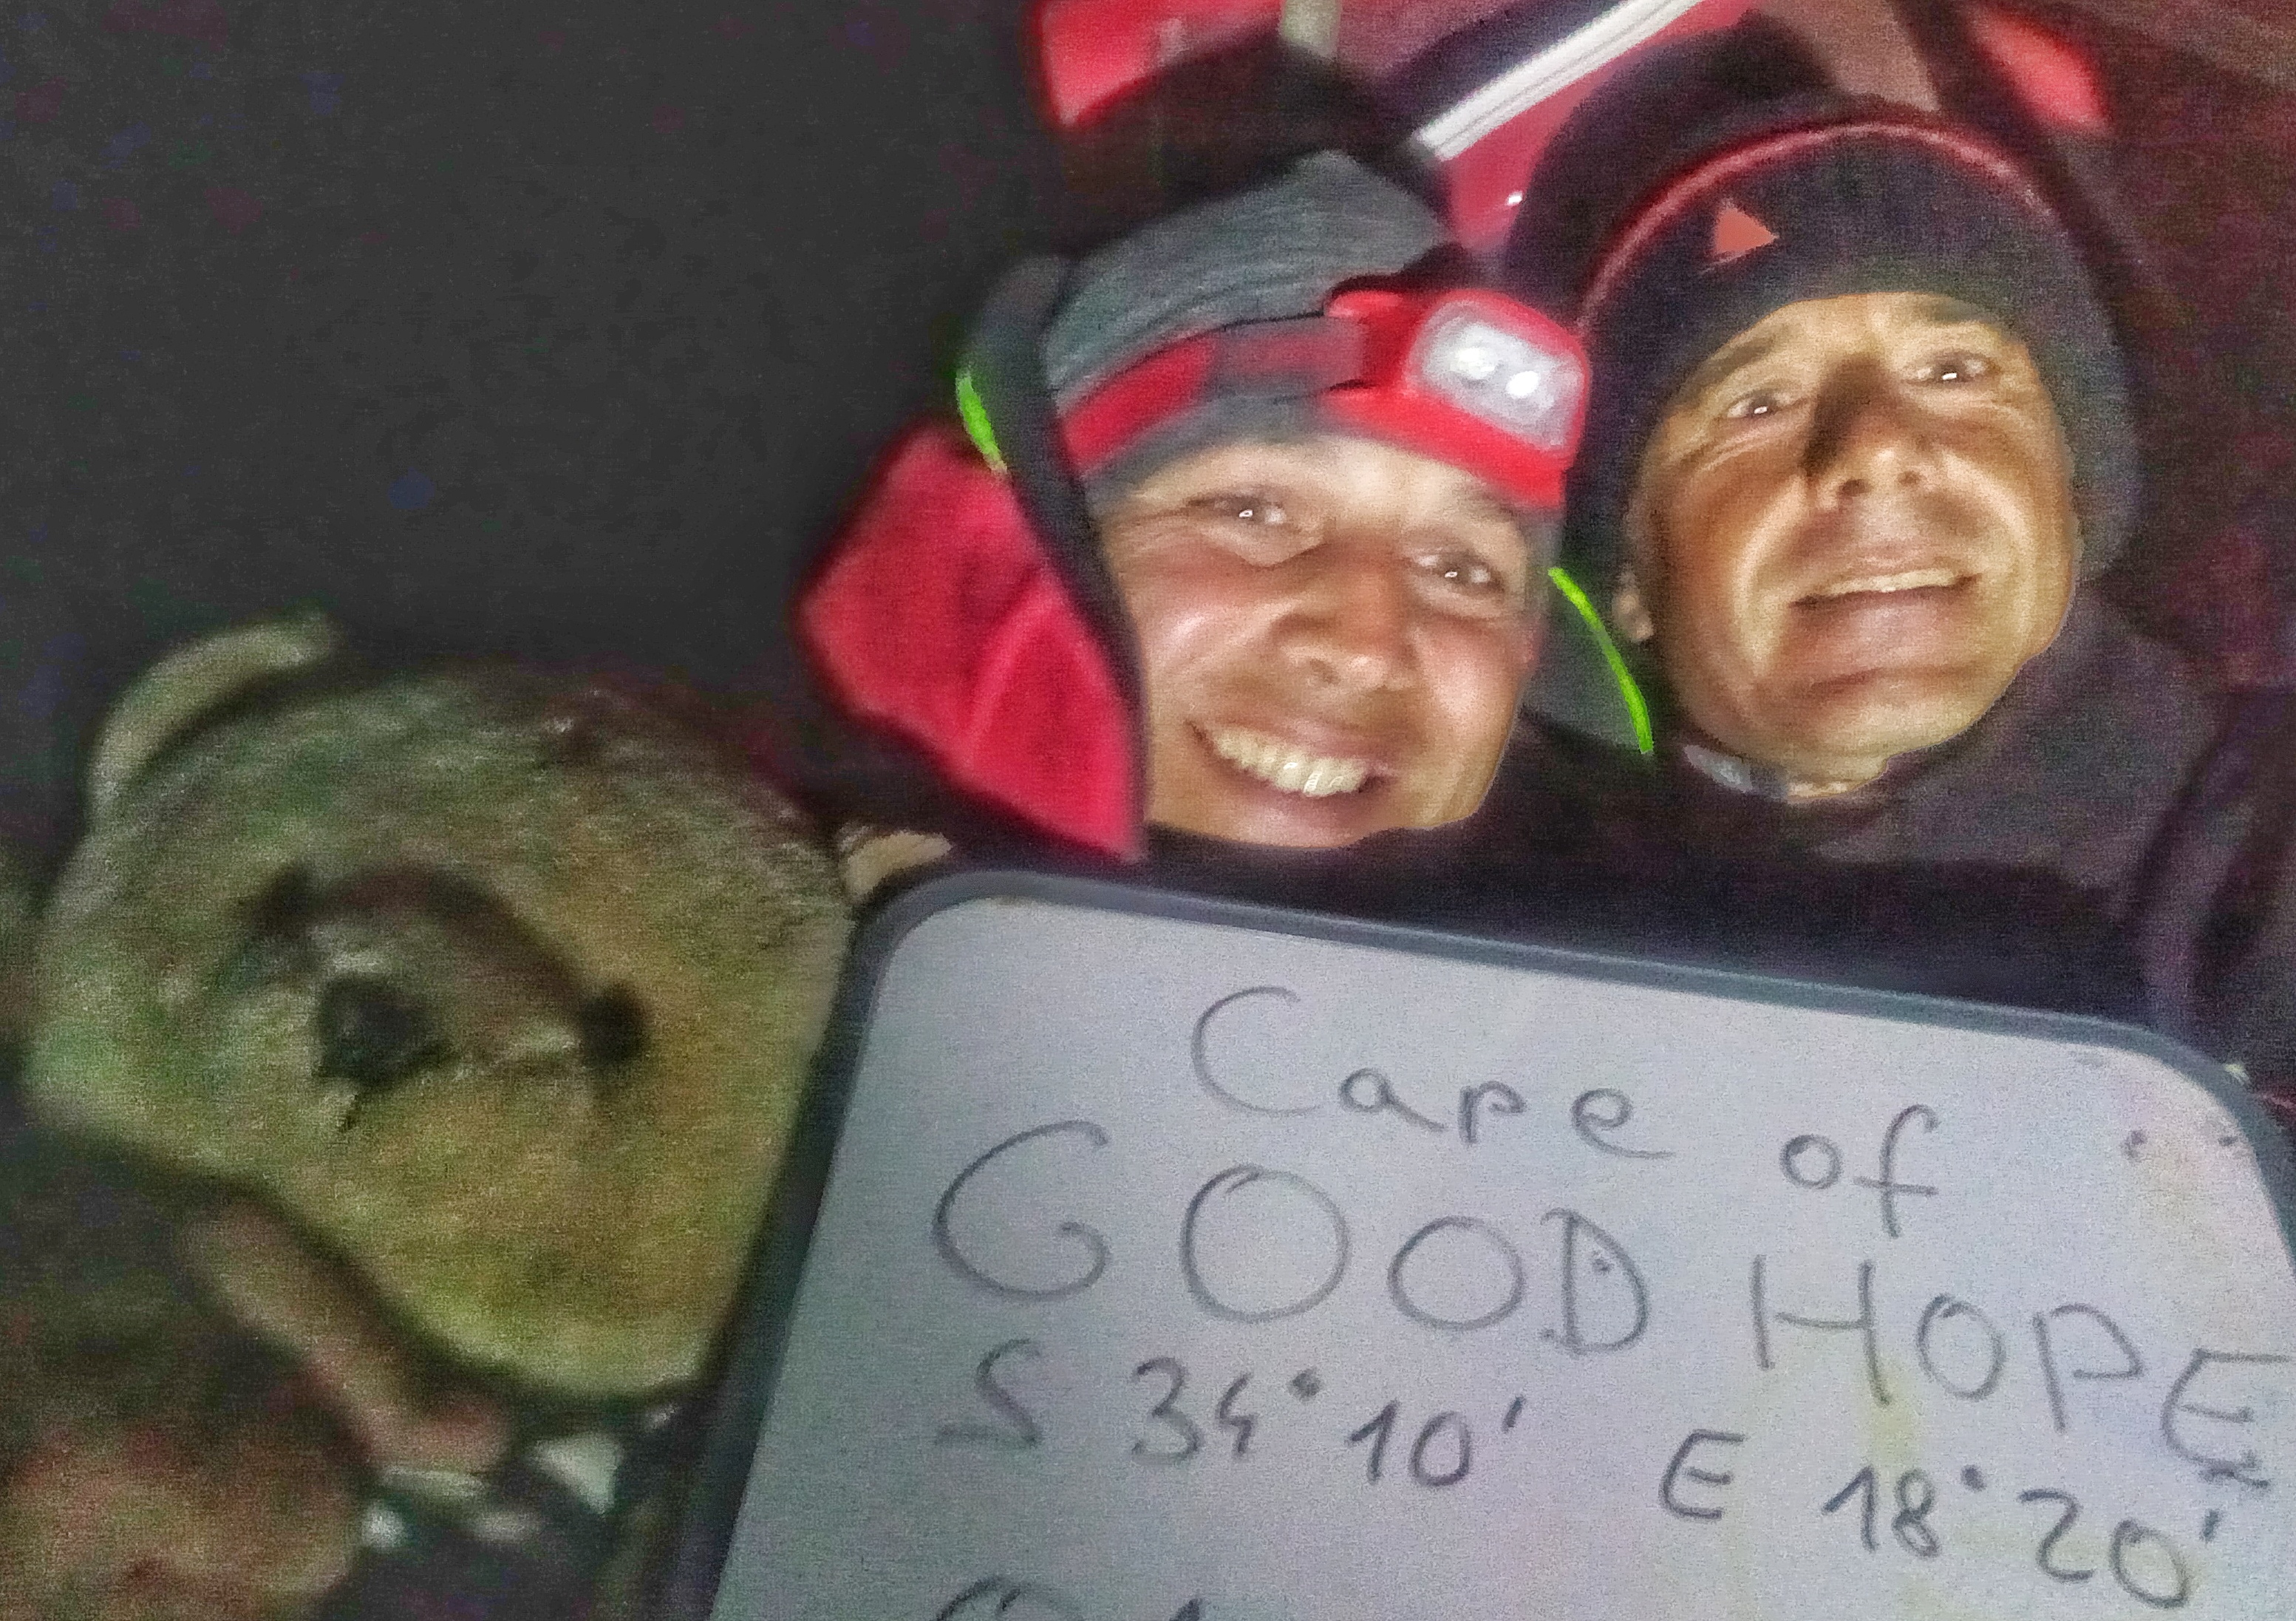 Cape of
GOOD HOPE
S 34°10' E 18°20'